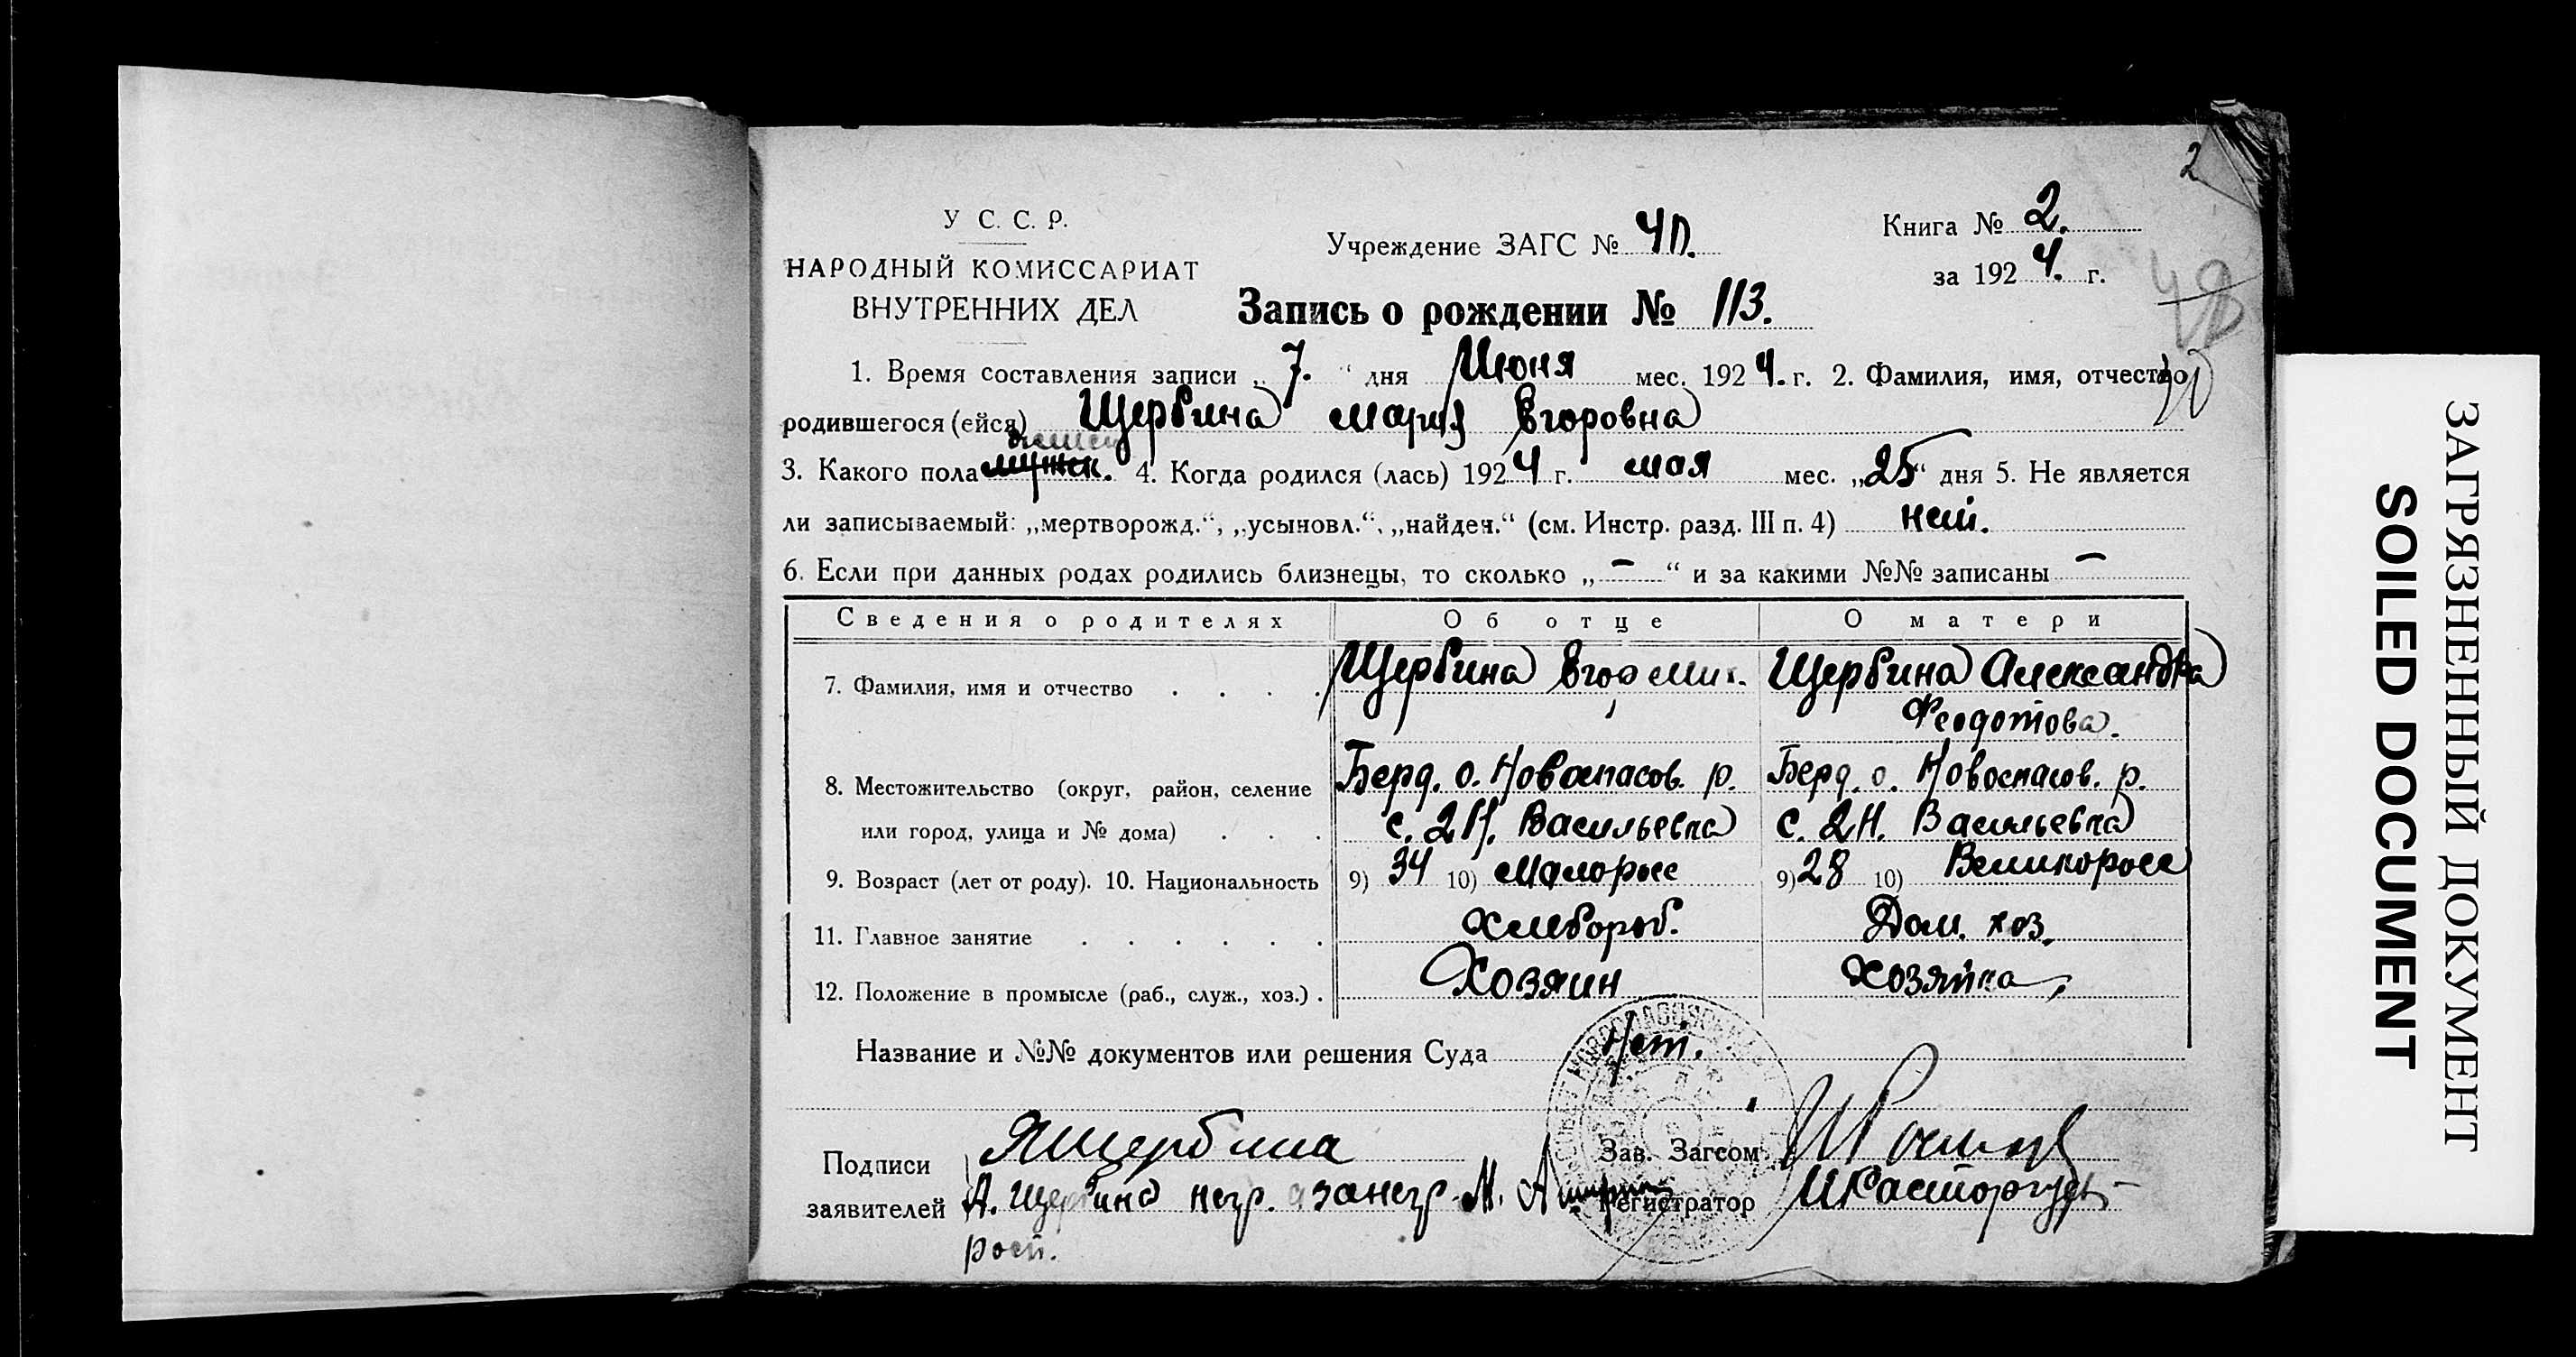 2
У С. С. Р.
НАРОДНЫЙ КОМИССАРИАТ
ВНУТРЕННИХ ДЕЛ
Учреждение ЗАГС №
Книга № 2.
за 1924. г.
Запись о рождении № 113.
1. Время составления записи „ 7. “ дня Июня мес. 1924. г. 2. Фамилия, имя, отчество
родившегося (ейся) Щербина Мария Егоровна
женск
3. Какого пола мужск. 4. Когда родился (лась) 1924 г. мая мес. „25“ дня 5. Не является
ли записываемый: „мертворожд.“, „усыновл.“, „найден.“ (см. Инстр. разд. III п. 4) нет.
6. Если при данных родах родились близнецы, то сколько „ — “ и за какими №№ записаны —
Сведения о родителях Об отце О матери
7. Фамилия, имя и отчество . . . . Щербина Егор Мих. Щербина Александра
Феодотова.
8. Местожительство (округ, район, селение Берд. о. Новоспасов. р. Берд. о. Новоспасов. р.
или город, улица и № дома) . . . с. 2 Н. Васильевка с. 2 Н. Васильевка
9. Возраст (лет от роду). 10. Национальность 9) 34 10) Малоросс 9) 28 10) Великоросс
11. Главное занятие . . . . . . Хлебороб. Дом. хоз.
12. Положение в промысле (раб., служ., хоз.) . Хозяин Хозяйка
Название и №№ документов или решения Суда Нет.
Подписи Щербина Зав. Загсом
заявителей А. Щербина негр. а за негр. Регистратор
росп.
ЗАГРЯЗНЕННЫЙ ДОКУМЕНТ
SOILED DOCUMENT